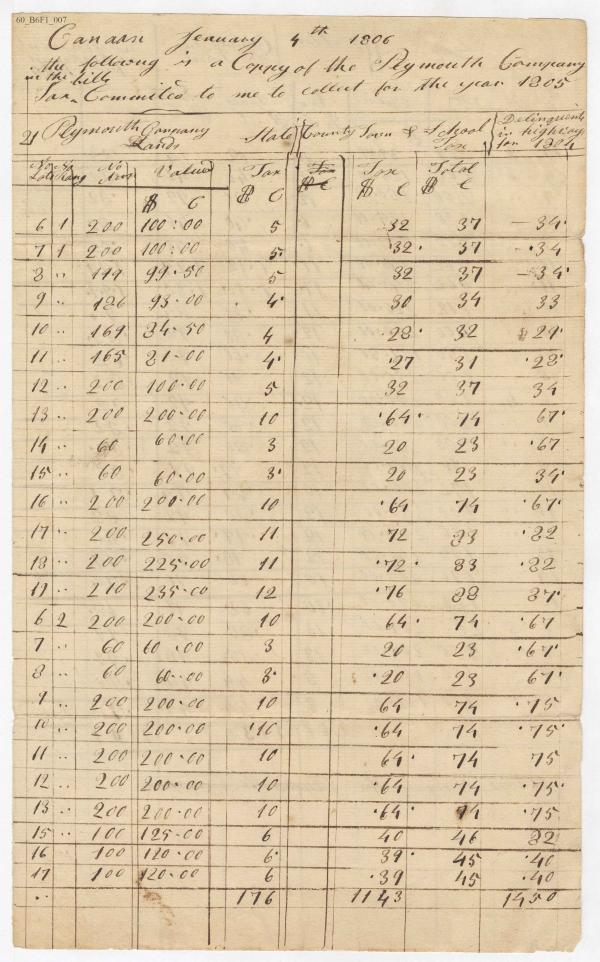 60_B6F1_007
Canaan January 4th 1806
the following is a Copy of the Plymouth Company
in the bills
Tax Commited to me to collect for the year 1805
21 Plymouth Company Lands State County Town & School Tax Delinquents in highway for 1804
No Lots Rang No Acres Valued Tax Tax Tax Total
$ C $ C $ C $ C $ C
6 1 200 100:00 5 32 37 - 34
7 1 200 100:00 5 32 37 - 34
8 " 199 99.50 5 32 37 - 34
9 " 186 93.00 4 30 34 33
10 " 169 84.50 4 28 32 29
11 " 165 81.00 4 27 31 28
12 " 200 100.00 5 32 37 34
13 " 200 200.00 10 64 74 67
14 " 60 60.00 3 20 23 67
15 " 60 60.00 3 20 23 34
16 " 200 200.00 10 64 74 67
17 " 200 250.00 11 72 83 82
18 " 200 225.00 11 72 83 82
19 " 210 235.00 12 76 88 87
6 2 200 200.00 10 64 74 67
7 " 60 60.00 3 20 23 67
8 " 60 60.00 3 20 23 67
9 " 200 200.00 10 64 74 75
10 " 200 200.00 10 64 74 75
11 " 200 200.00 10 64 74 75
12 " 200 200.00 10 64 74 75
13 " 200 200.00 10 64 74 75
15 " 100 125.00 6 40 46 82
16 100 120.00 6 39 45 40
17 100 120.00 6 39 45 40
" 176 1143 1450